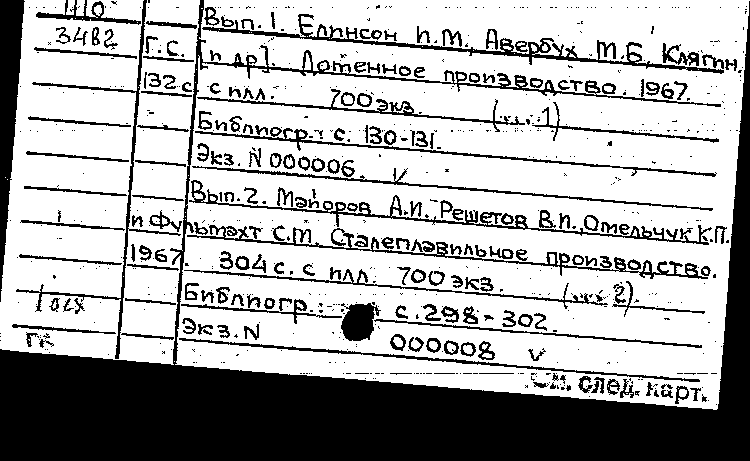 1110
3482
Вып. 1. Елинсон И.М., Авербух М.Б., Клягин
Г.С. [и др]. Доменное производство. 1967.
132 с. с илл. 700 экз. 1)
Библиогр.: с. 130-131.
Экз. N 000006. V
Вып. 2. Майоров А.И., Решетов В.П., Омельчук К.П.
и Фультмахт С.М. Сталеплавильное производство.
1967. 304 с. с илл. 700 экз. 2).
Библиогр.: с. 298-302.
Экз. N 000008 V
ГБ
См. след. карт.